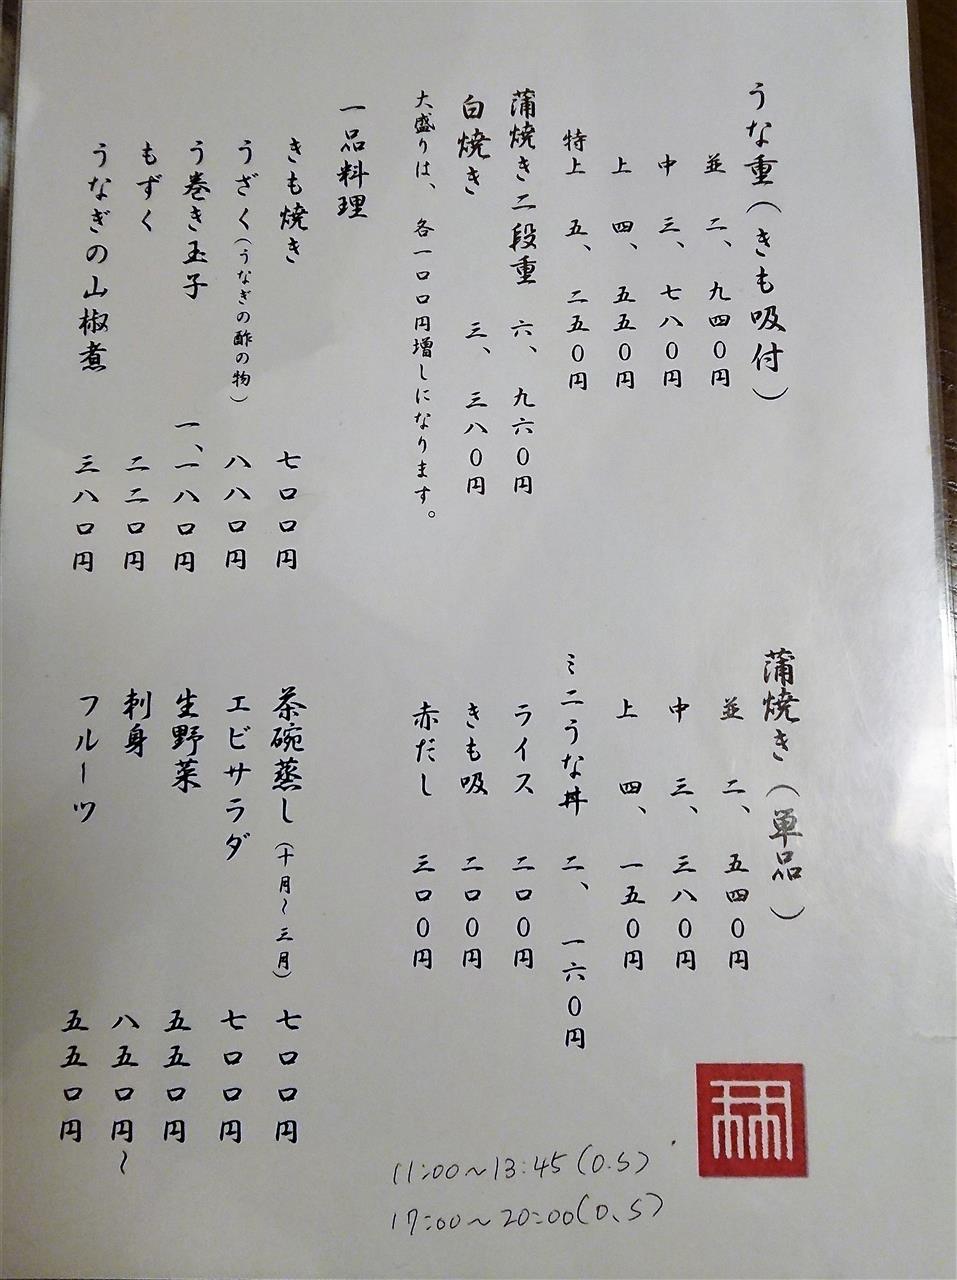 うな重（きも吸付）
並 二、九四０円
中 三、七八０円
上 四、五五０円
特上 五、二五０円
蒲焼き二段重 六、九六０円
白焼き 三、三八０円
大盛りは、各一口口円増しになります。
蒲焼き（単品）
並 二、五四０円
中 三、三八０円
上 四、一五０円
ミニうな丼 二、一六０円
ライス 二口０円
きも吸 二口０円
赤だし 三口０円
一品料理
きも焼き 七口口円
うざく（うなぎの酢の物） 八八口円
う巻き玉子 一、一八口円
もずく 二二口円
うなぎの山椒煮 三八口円
茶碗蒸し（十月～三月） 七口口円
エビサラダ 七口口円
生野菜 五五口円
刺身 八五口円～
フルーツ 五五口円
11:00～13:45(O.S)
17:00～20:00(O.S)